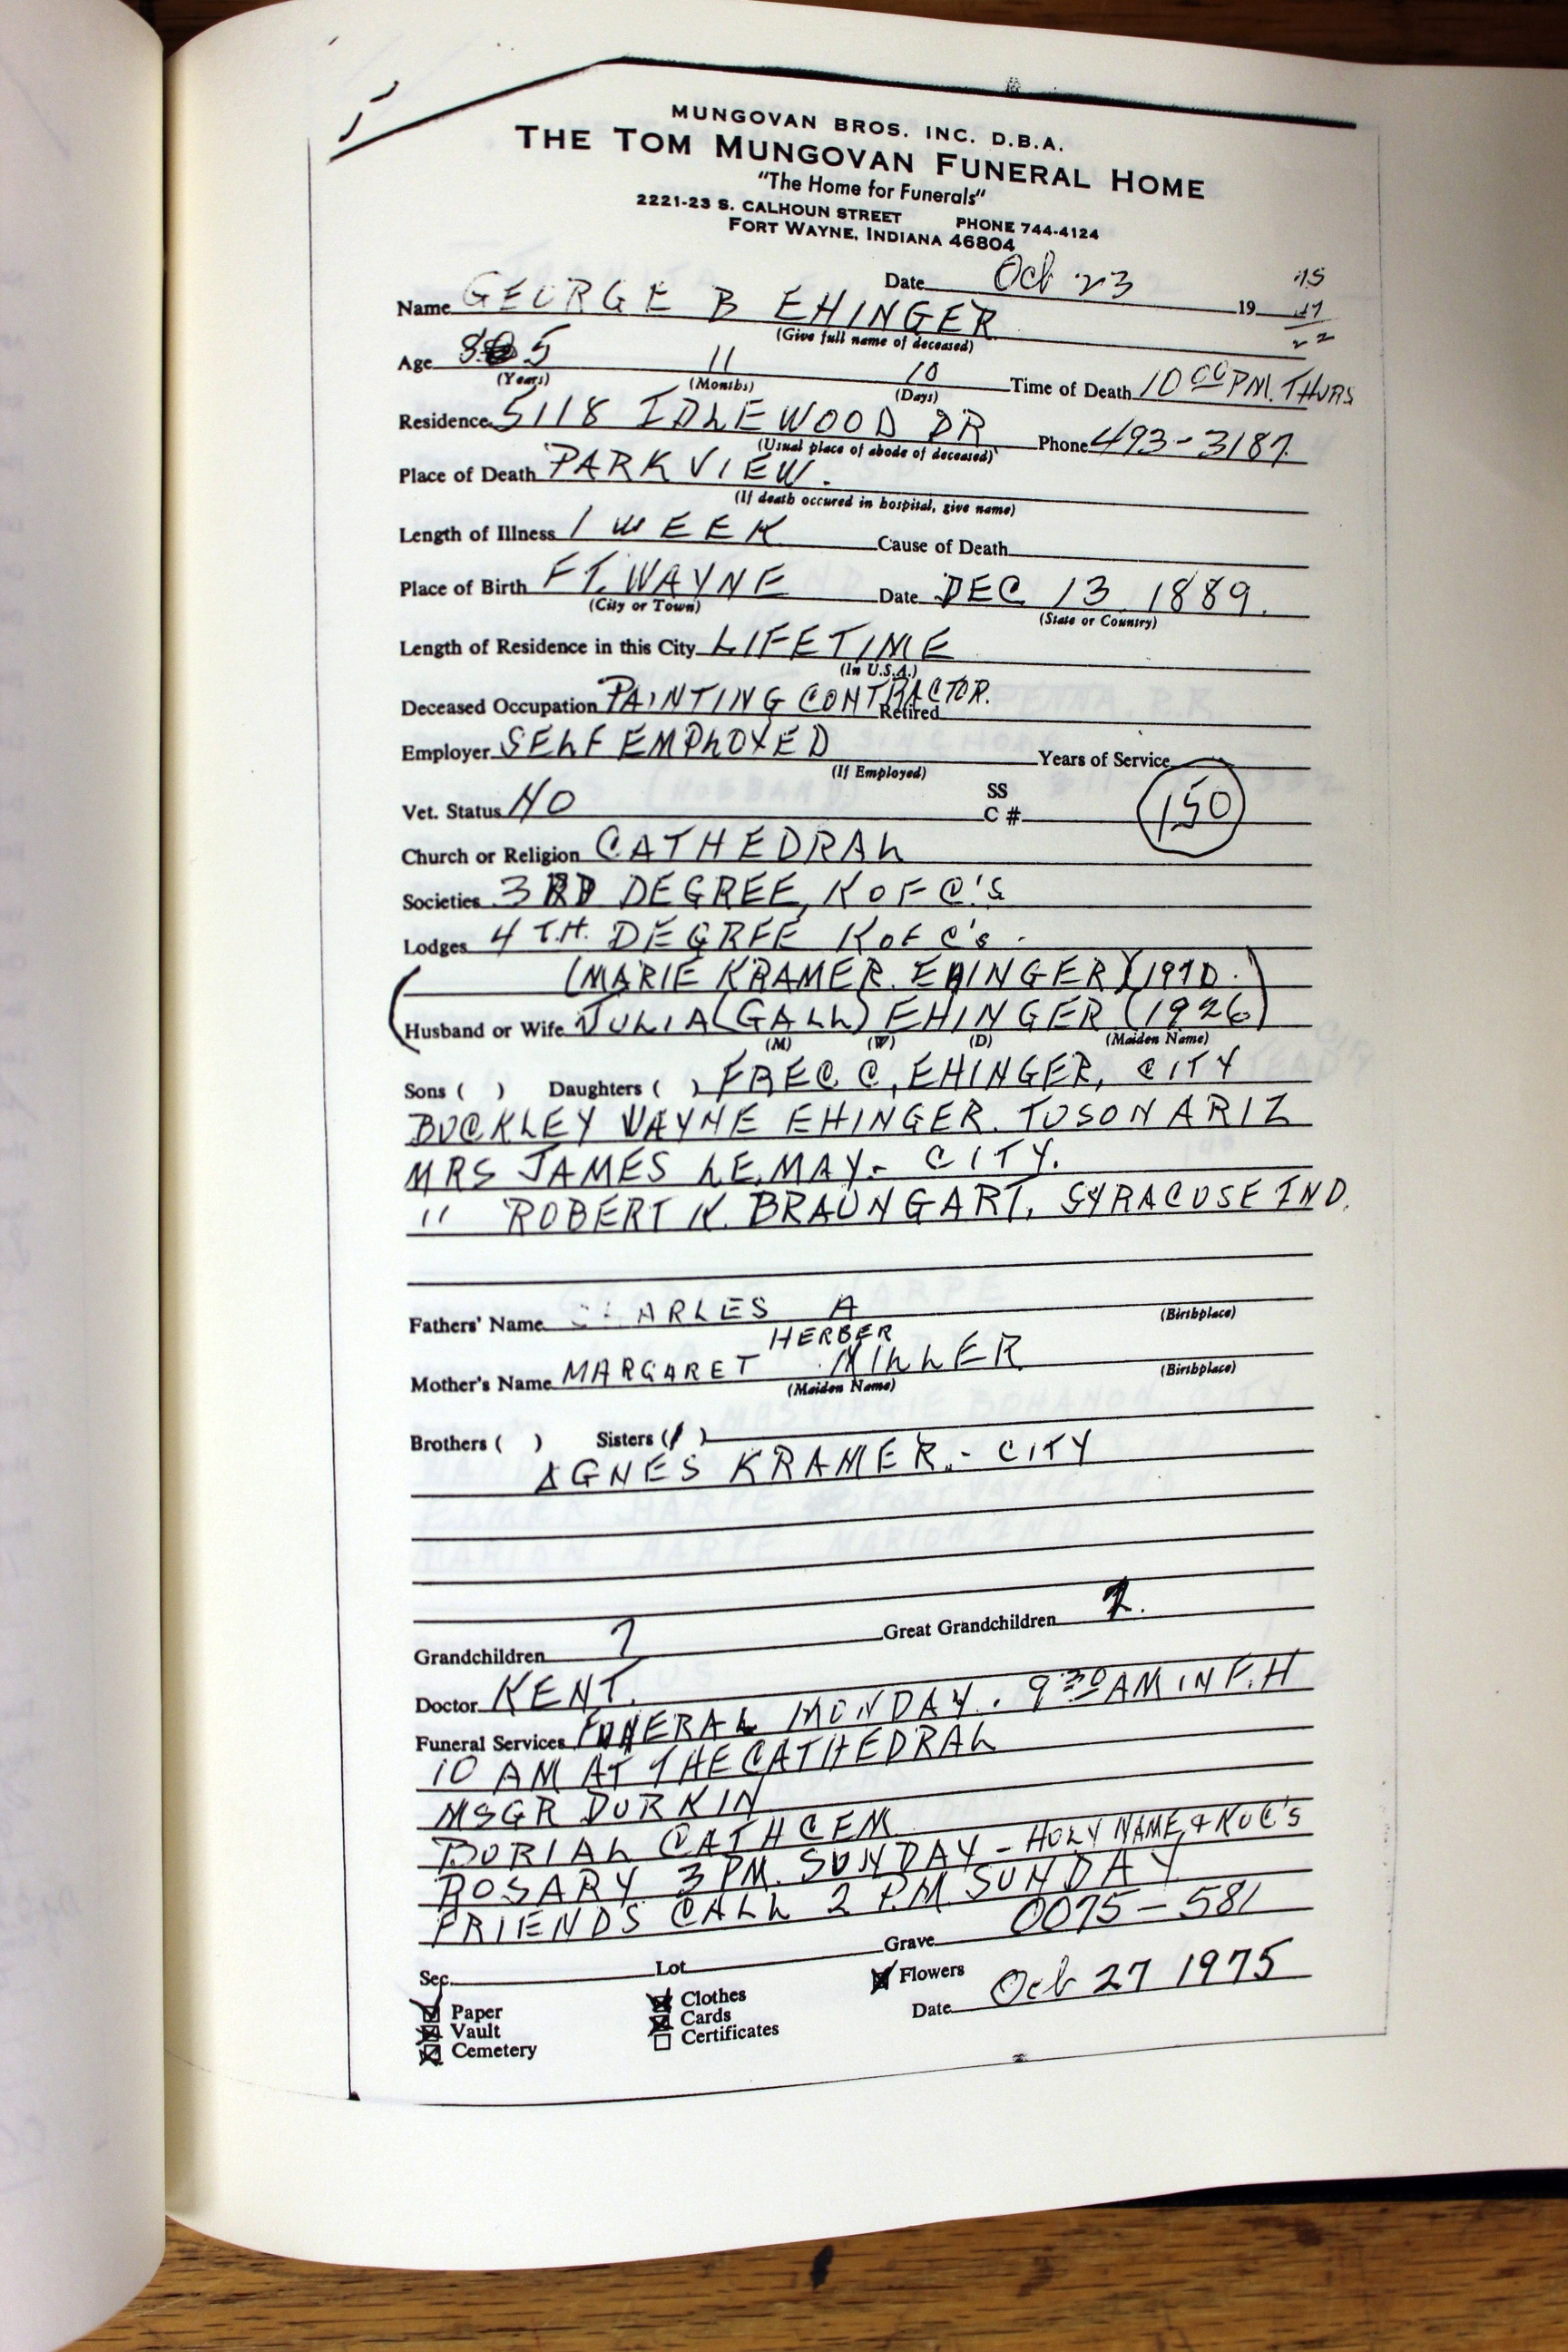 MUNGOVAN BROS. INC. D.B.A.
THE TOM MUNGOVAN FUNERAL HOME
"The Home for Funerals"
2221-23 S. CALHOUN STREET PHONE 744-4124
FORT WAYNE, INDIANA 46804
Date Oct 23 19 75
Name GEORGE B EHINGER
(Give full name of deceased)
Age 85 11 10 Time of Death 10 00 PM. THURS
(Years) (Months) (Days)
Residence 5118 IDLEWOOD DR Phone 493-3187.
(Usual place of abode of deceased)
Place of Death PARKVIEW.
(If death occured in hospital, give name)
Length of Illness 1 WEEK Cause of Death
Place of Birth FT. WAYNE Date DEC 13 1889.
(City or Town) (State or Country)
Length of Residence in this City LIFETIME
(In U.S.A.)
Deceased Occupation PAINTING CONTRACTOR.
Retired
Employer SELF EMPLOYED Years of Service
(If Employed)
Vet. Status NO SS C # 150
Church or Religion CATHEDRAL
Societies 3RD DEGREE, K OF C'S
Lodges 4 TH. DEGREE K OF C's .
(MARIE KRAMER. EHINGER)(1970.)
Husband or Wife JULIA (GALL) EHINGER (1926)
(M) (W) (D) (Maiden Name)
Sons ( ) Daughters ( ) FREC. C, EHINGER, CITY
BUCKLEY WAYNE EHINGER. TUSON ARIZ
MRS JAMES LE.MAY. - CITY.
" ROBERT K. BRAUNGART. SYRACUSE IND.
Fathers' Name ARLES A (Birthplace)
HERBER
Mother's Name MARGARET MILLER (Birthplace)
(Maiden Name)
Brothers ( ) Sisters (1)
AGNES KRAMER. - CITY
Grandchildren 7 Great Grandchildren
Doctor KENT.
Funeral Services FUNERAL MONDAY. 9 30 AM IN F.H
10 AM AT THE CATHEDRAL
MSGR DURKIN
BURIAL CATH CEM
ROSARY 3 PM. SUNDAY - HOLY NAME & K OF C'S
FRIENDS CALL 2 P.M. SUNDAY
Sec. Lot Grave 0075-581
Paper Clothes Flowers
Vault Cards Date Oct 27 1975
Cemetery Certificates